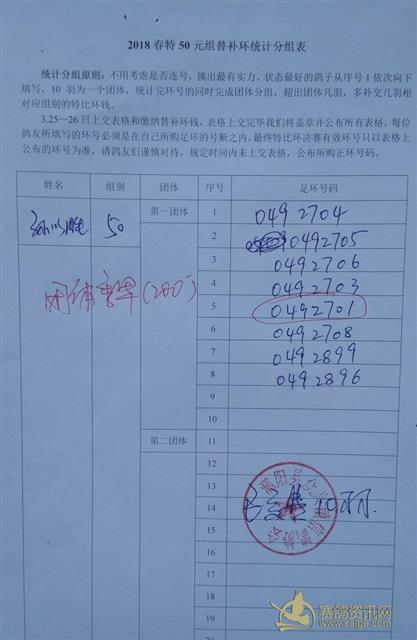 2018 春特 50 元组替补环统计分组表
统计分组原则：不用考虑是否连号，挑出最有实力、状态最好的鸽子从序号 1 依次向下
填写，10 羽为一个团体，统计完环号的同时完成团体分组，超出团体几羽，多补交几羽相
对应组别的特比环钱。
3.25—26 日上交表格和缴纳替补环钱，表格上交完毕我们将盖章并公布所有表格，每位
鸽友所填写的环号必须是在自己所购足环的号断之内，最终特比环决赛有效环号只以表格上
公布的环号为准，请鸽友们谨慎对待。规定时间内未上交表格，公布所购正环号码。
姓名 组别 团体 序号 足环号码
50 第一团体 1 0492704
2 0492705
3 0492706
4 0492703
5 0492701
6 0492708
7 0492899
8 0492896
9
10
第二团体 11
12
13
14 10羽.
15
16
17
18
19
赛鸽资讯网
www.saige.com